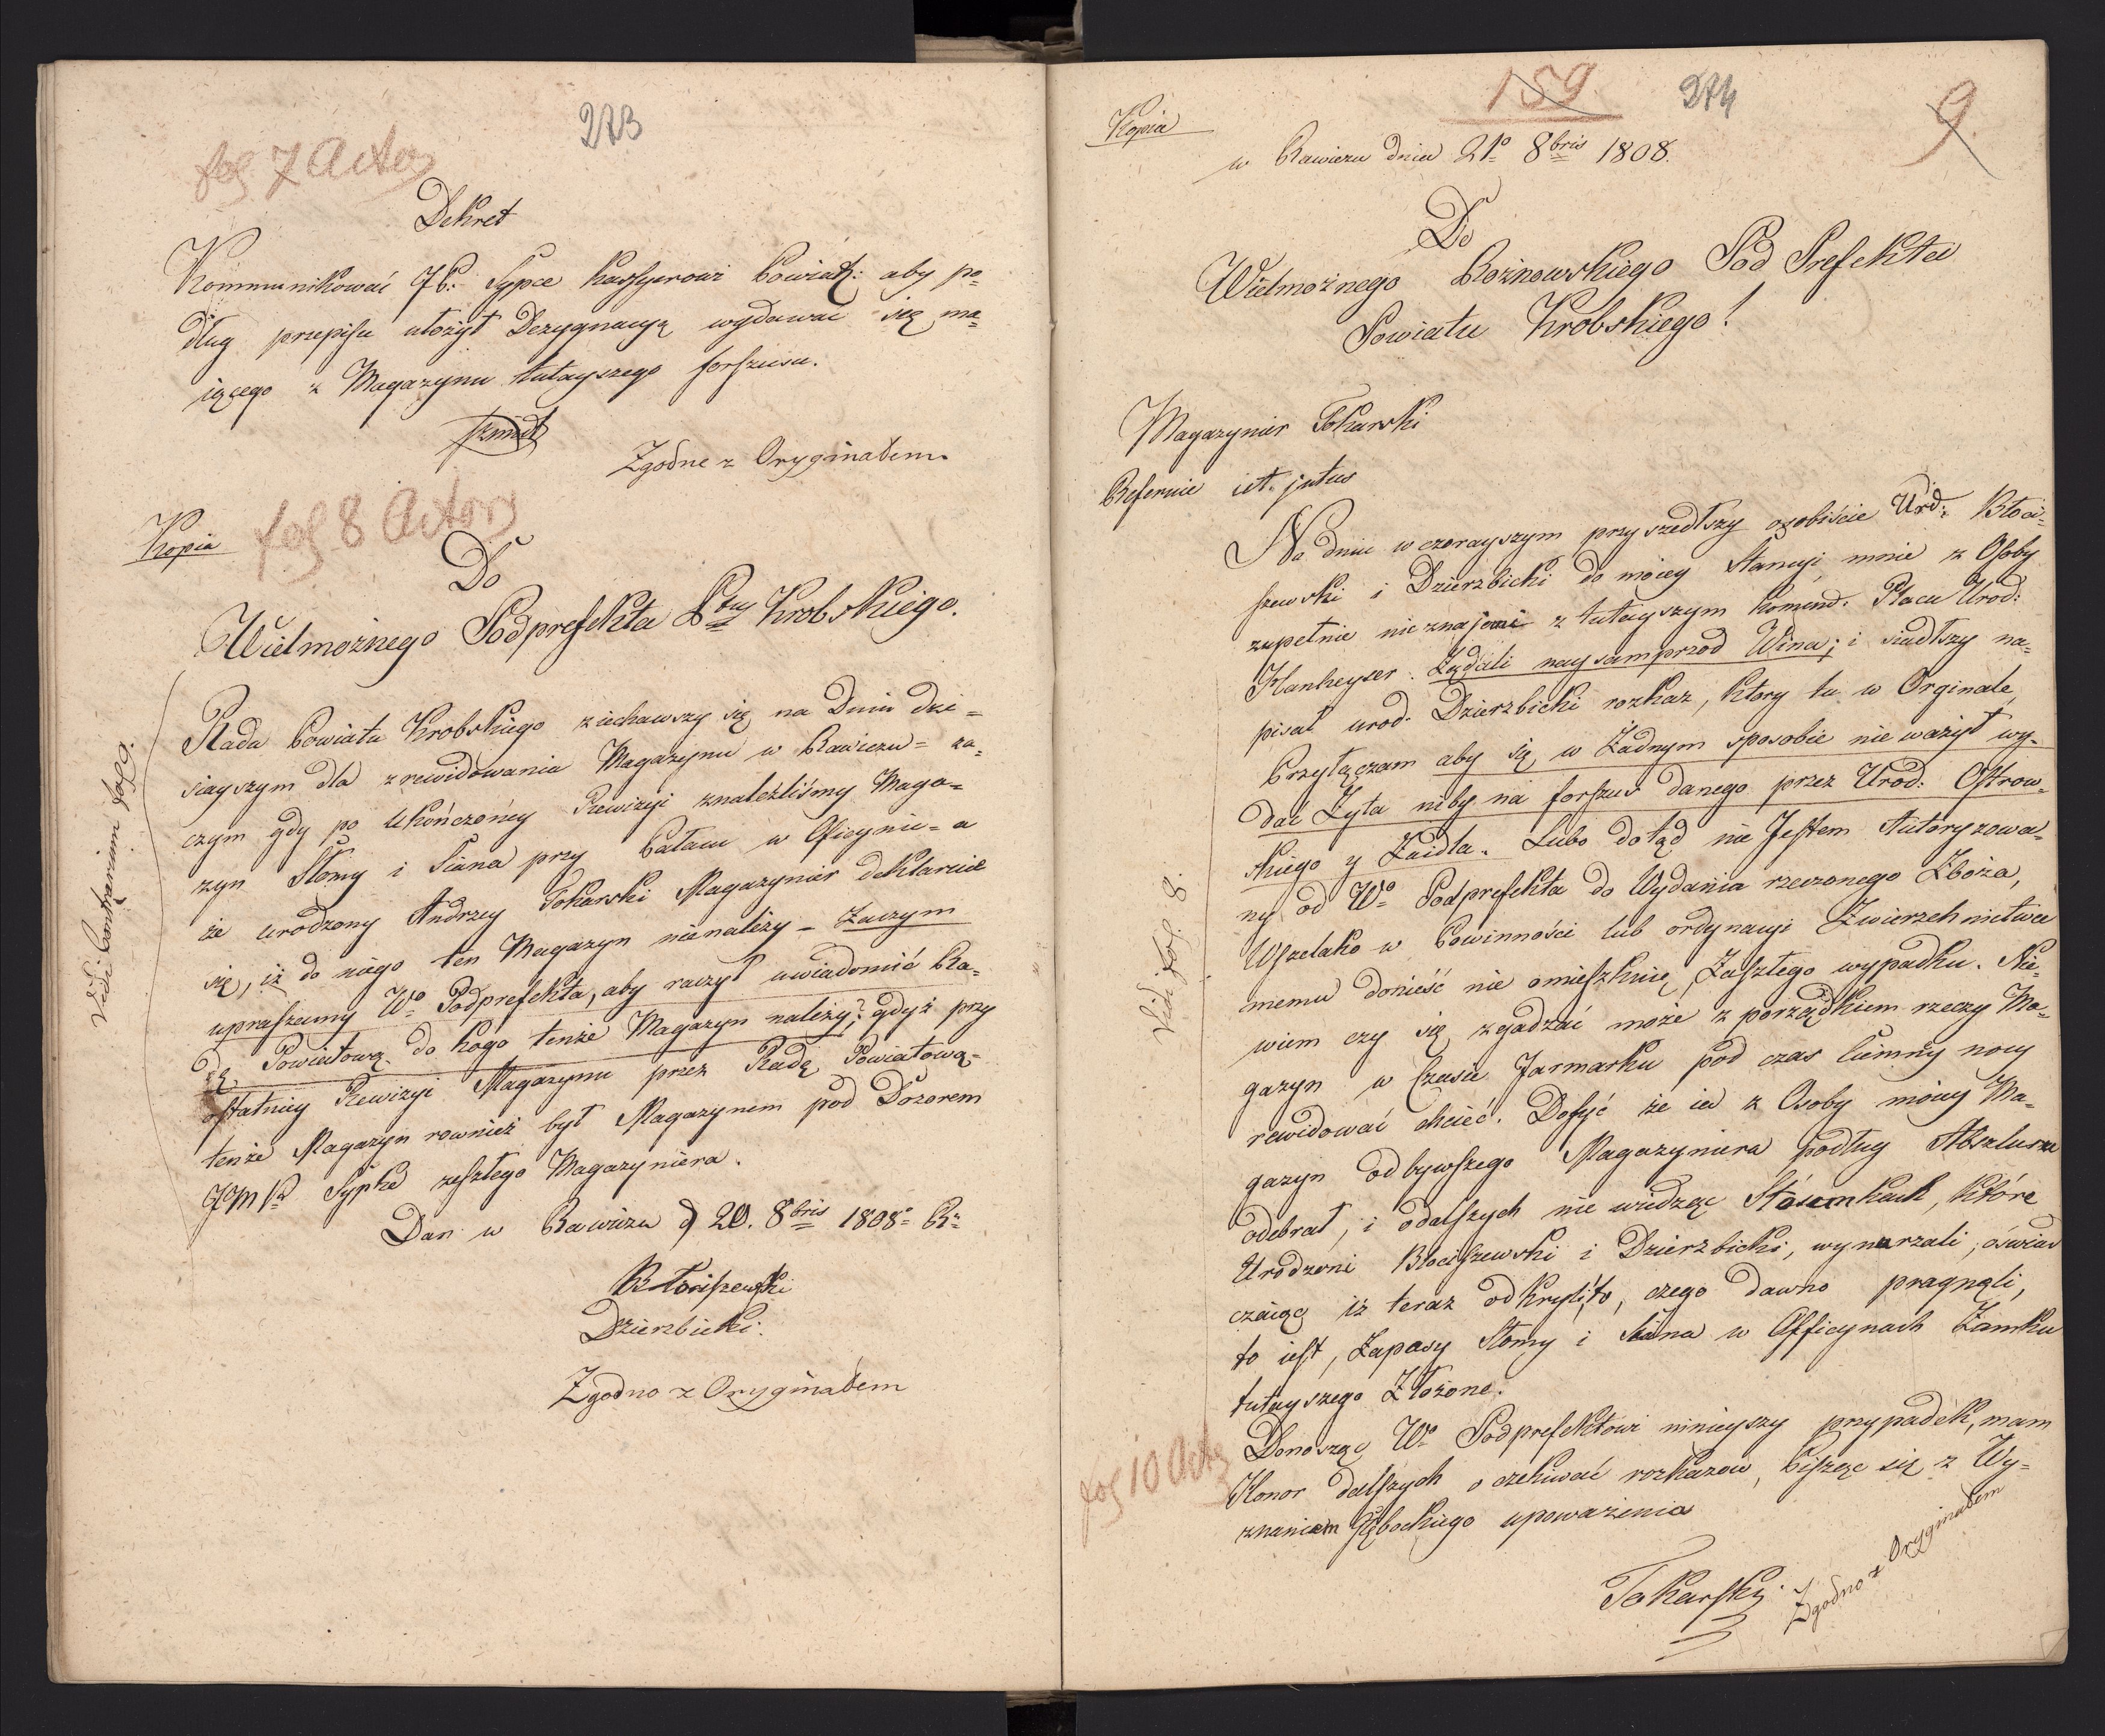 273
fol. 7 Actor
Dekret
Kommunikować JP. Sypce Kassyerowi Powiatt: aby po=
dług przepisu ułożył Dezygnacyą wydawać się ma=
iącego z Magazynu tutayszego forszusu.
Zgodne z Oryginałem.
Kopia
fol. 8 Actors
Do
Wielmożnego Podprefekta Ptu Krobskiego.
Rada Powiatu Krobskiego ziechawszy się na Dniu dzi=
siayszym dla zrewidowania Magazynu w Rawiczu = za=
czym gdy po Ukończonéy Rewizyi znaleźliśmy Maga=
zyn Słomy i Siana przy Pałacu w Oficynie = a
że urodzony Andrzey Tokarski Magazynier deklaruie
się, iż do niego ten Magazyn nienależy = Zaczym
upraszamy Wo Podprefekta, aby raczył uwiadomić Ra=
dę Powiatową do kogo tenże Magazyn należy? gdyż przy
ostatniey Rewizyi Magazynu przez Radę Powiatową =
tenże Magazyn również był Magazynem pod Dozorem
JMP Sypka zeszłego Magazyniera.
Dan w Rawiczu d 20. 8bris 1808o R:
Błociszewski
Dzierzbicki.
Zgodno z Oryginałem
Vidi Contrarium fol 9.
159.
274
9
Kopia
w Rawiczu dnia 21o 8bris 1808.
Do
Wielmożnego Rożnowskiego Pod Prefekta
Powiatu Krobskiego!
Magazynier Tokarski
Referuie ut. intus
Na dniu wczorayszym przyszedłszy osobiście Urd: Błoci=
szewski i Dzierzbicki do moiey Stancyi mnie z Osoby
zupełnie nieznajomi z tuteyszym Komend. Placu Urod:
Hankeyser. Żądali naysamprzod Wina; i siadłszy na=
pisał urod. Dzierzbicki rozkaz, ktory tu w Orginale
Przyłączam aby się w Żadnym sposobie nie ważył wy=
dać Żyta niby na forszus danego przez Urod: Ostrow=
skiego y Zaidla. Lubo dotąd nie Jestem Autoryzowa=
ny od Wo Podprefekta do Wydania rzeczonego Zboża,
Wszelako w Powinności lub ordynacyi Zwierzchnictwa
memu donieść nie omieszkuię Zaszłego wypadku. Nie=
wiem czy się zgadzać może z porządkiem rzeczy Ma=
gazyn w Czasie Jarmarku pod czas ciemnéy nocy
rewidować chcieć. Dosyć że ia z Osoby moiey Ma=
gazyn od bywszego Magazyniera podług Abszlussu
odebrał, i o dalszych nie wiedząc Stosunkach, które
Urodzeni Błociszewski i Dzierzbicki, wynurzali, oświad
czaiąc iż teraz odkryli to, czego dawno pragnęli,
to iest, Zapasy Słomy i Siana w Officynach Zamku
tutayszego Złożone.
Donosząc Wo Podprefektowi ninieyszy przypadek, mam
Honor dalszych oczekiwać rozkazow, Pisząc się z Wy=
znaniem głębokiego upoważenia
Tokarsky
Zgodno z Oryginałem
Vidi fol. 8.
fol 10 Act